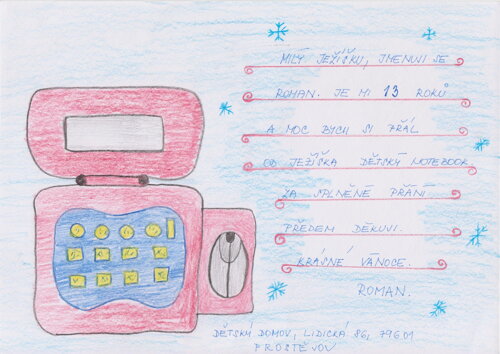 MILÝ JEŽÍŠKU, JMENUJI SE
ROMAN. JE MI 13 ROKŮ
A MOC BYCH SI PŘÁL
OD JEŽÍŠKA DĚTSKÝ NOTEBOOK
ZA SPLNĚNÉ PŘÁNÍ
PŘEDEM DĚKUVI.
KRÁSNÉ VÁNOCE.
ROMAN.
DĚTSKÝ DOMOV, LIDICKÁ 86, 796 01
PROSTĚJOV